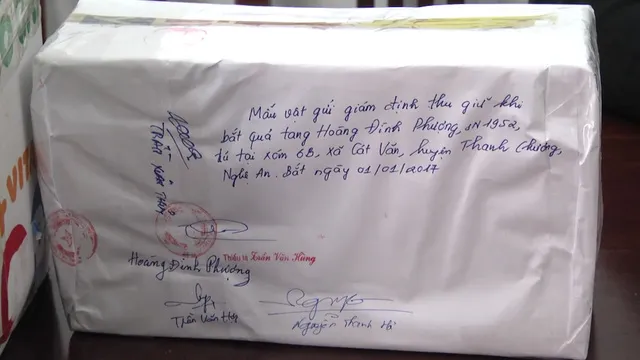 Mẫu vật gửi giám định thu giữ khi
bắt quả tang Hoàng Đình Phương, SN 1952,
trú tại xóm 6B, xã Cát Văn, huyện Thanh Chương,
Nghệ An. Bắt ngày 01/01/2017
Trần Xuân
Trần Văn Hùng
Hoàng Đình Phượng
Trần Văn
Nguyễn Thanh